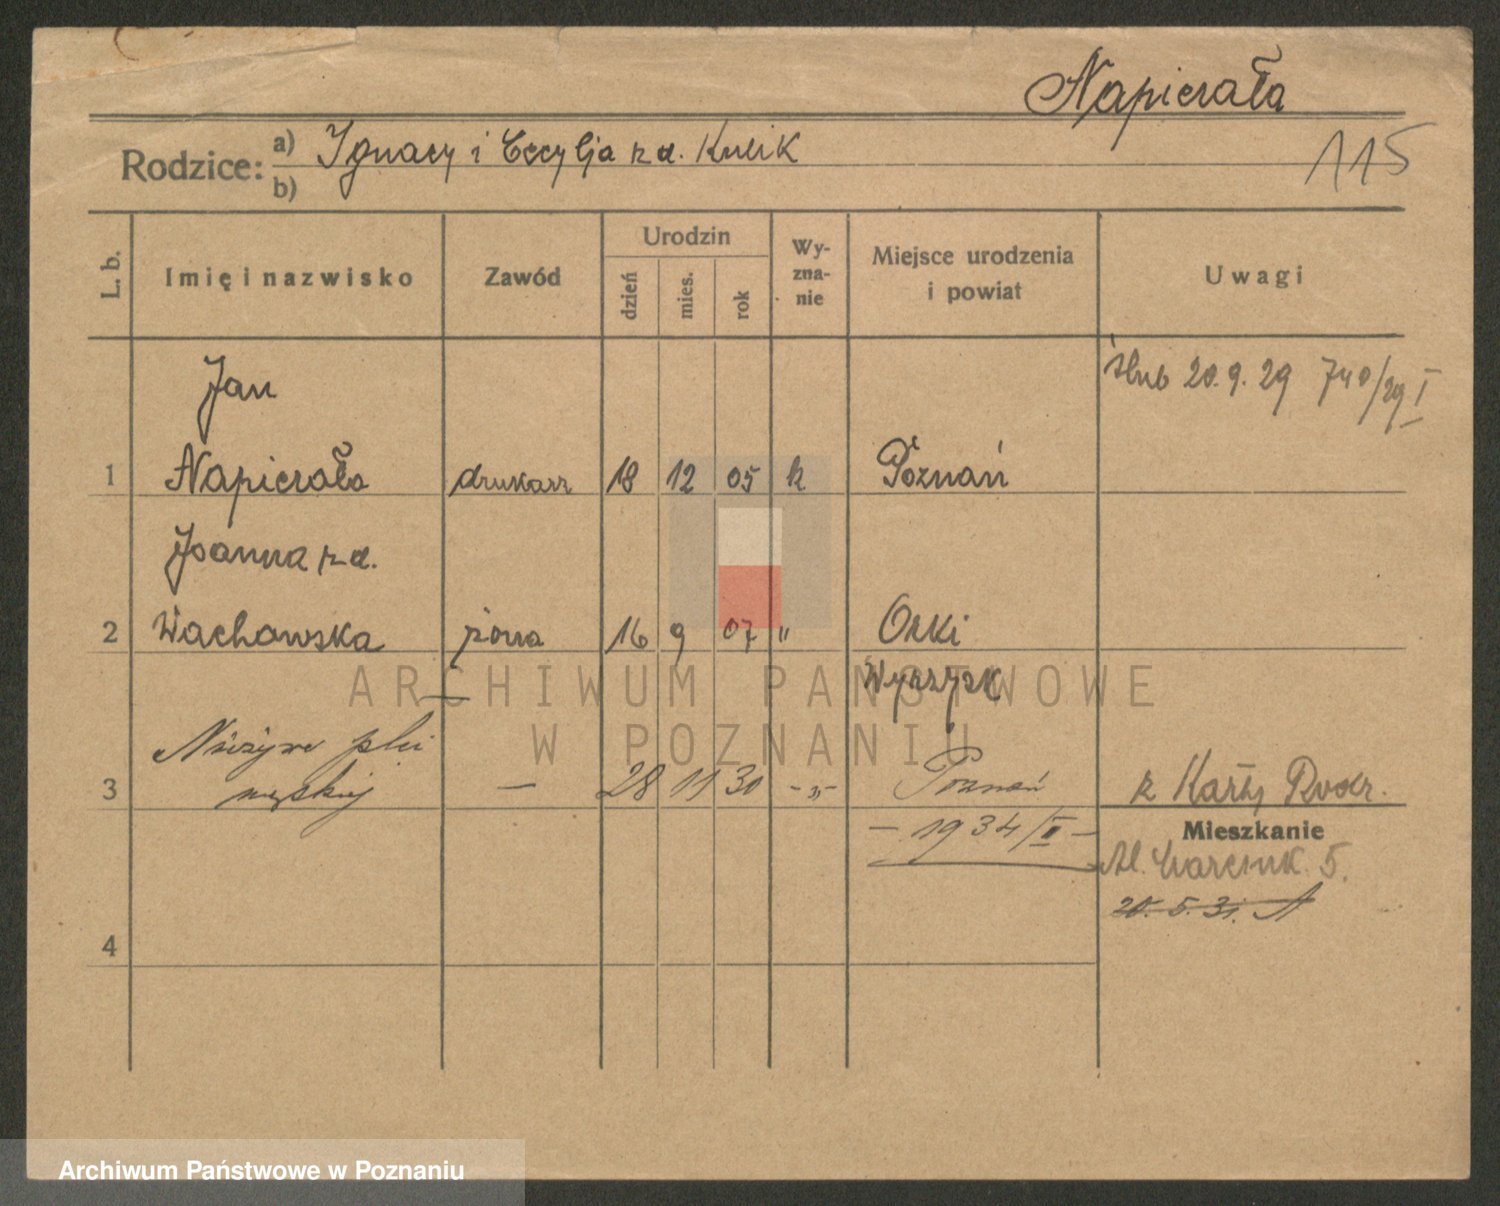 Napierała
115
Rodzice: a) Ignacy i Cecylja z d. Kulik
b)
L. b. Imię i nazwisko Zawód Urodzin dzień mies. rok Wy-zna-nie Miejsce urodzenia i powiat Uwagi
ślub 20.9.29 740/29 I
Jan
1 Napierała drukarz 18 12 05 k Poznań
Joanna z d.
2 Wachowska żona 16 9 07 " Orki
Wyrzysk
Nieżywe płci
3 męskiej — 28 11 30 -„- Poznań z Karty Rodz.
— 1934/II —
Mieszkanie
Al. Marcink. 5.
20. 5. 31.
4
ARCHIWUM PAŃSTWOWE
W POZNANIU
Archiwum Państwowe w Poznaniu